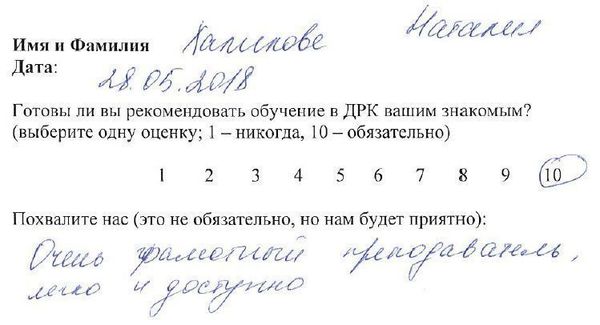 Имя и Фамилия Халикове Наталия
Дата: 28.05.2018
Готовы ли вы рекомендовать обучение в ДРК вашим знакомым?
(выберите одну оценку; 1 – никогда, 10 – обязательно)
1 2 3 4 5 6 7 8 9 10
Похвалите нас (это не обязательно, но нам будет приятно):
Очень грамотный преподаватель,
легко и доступно